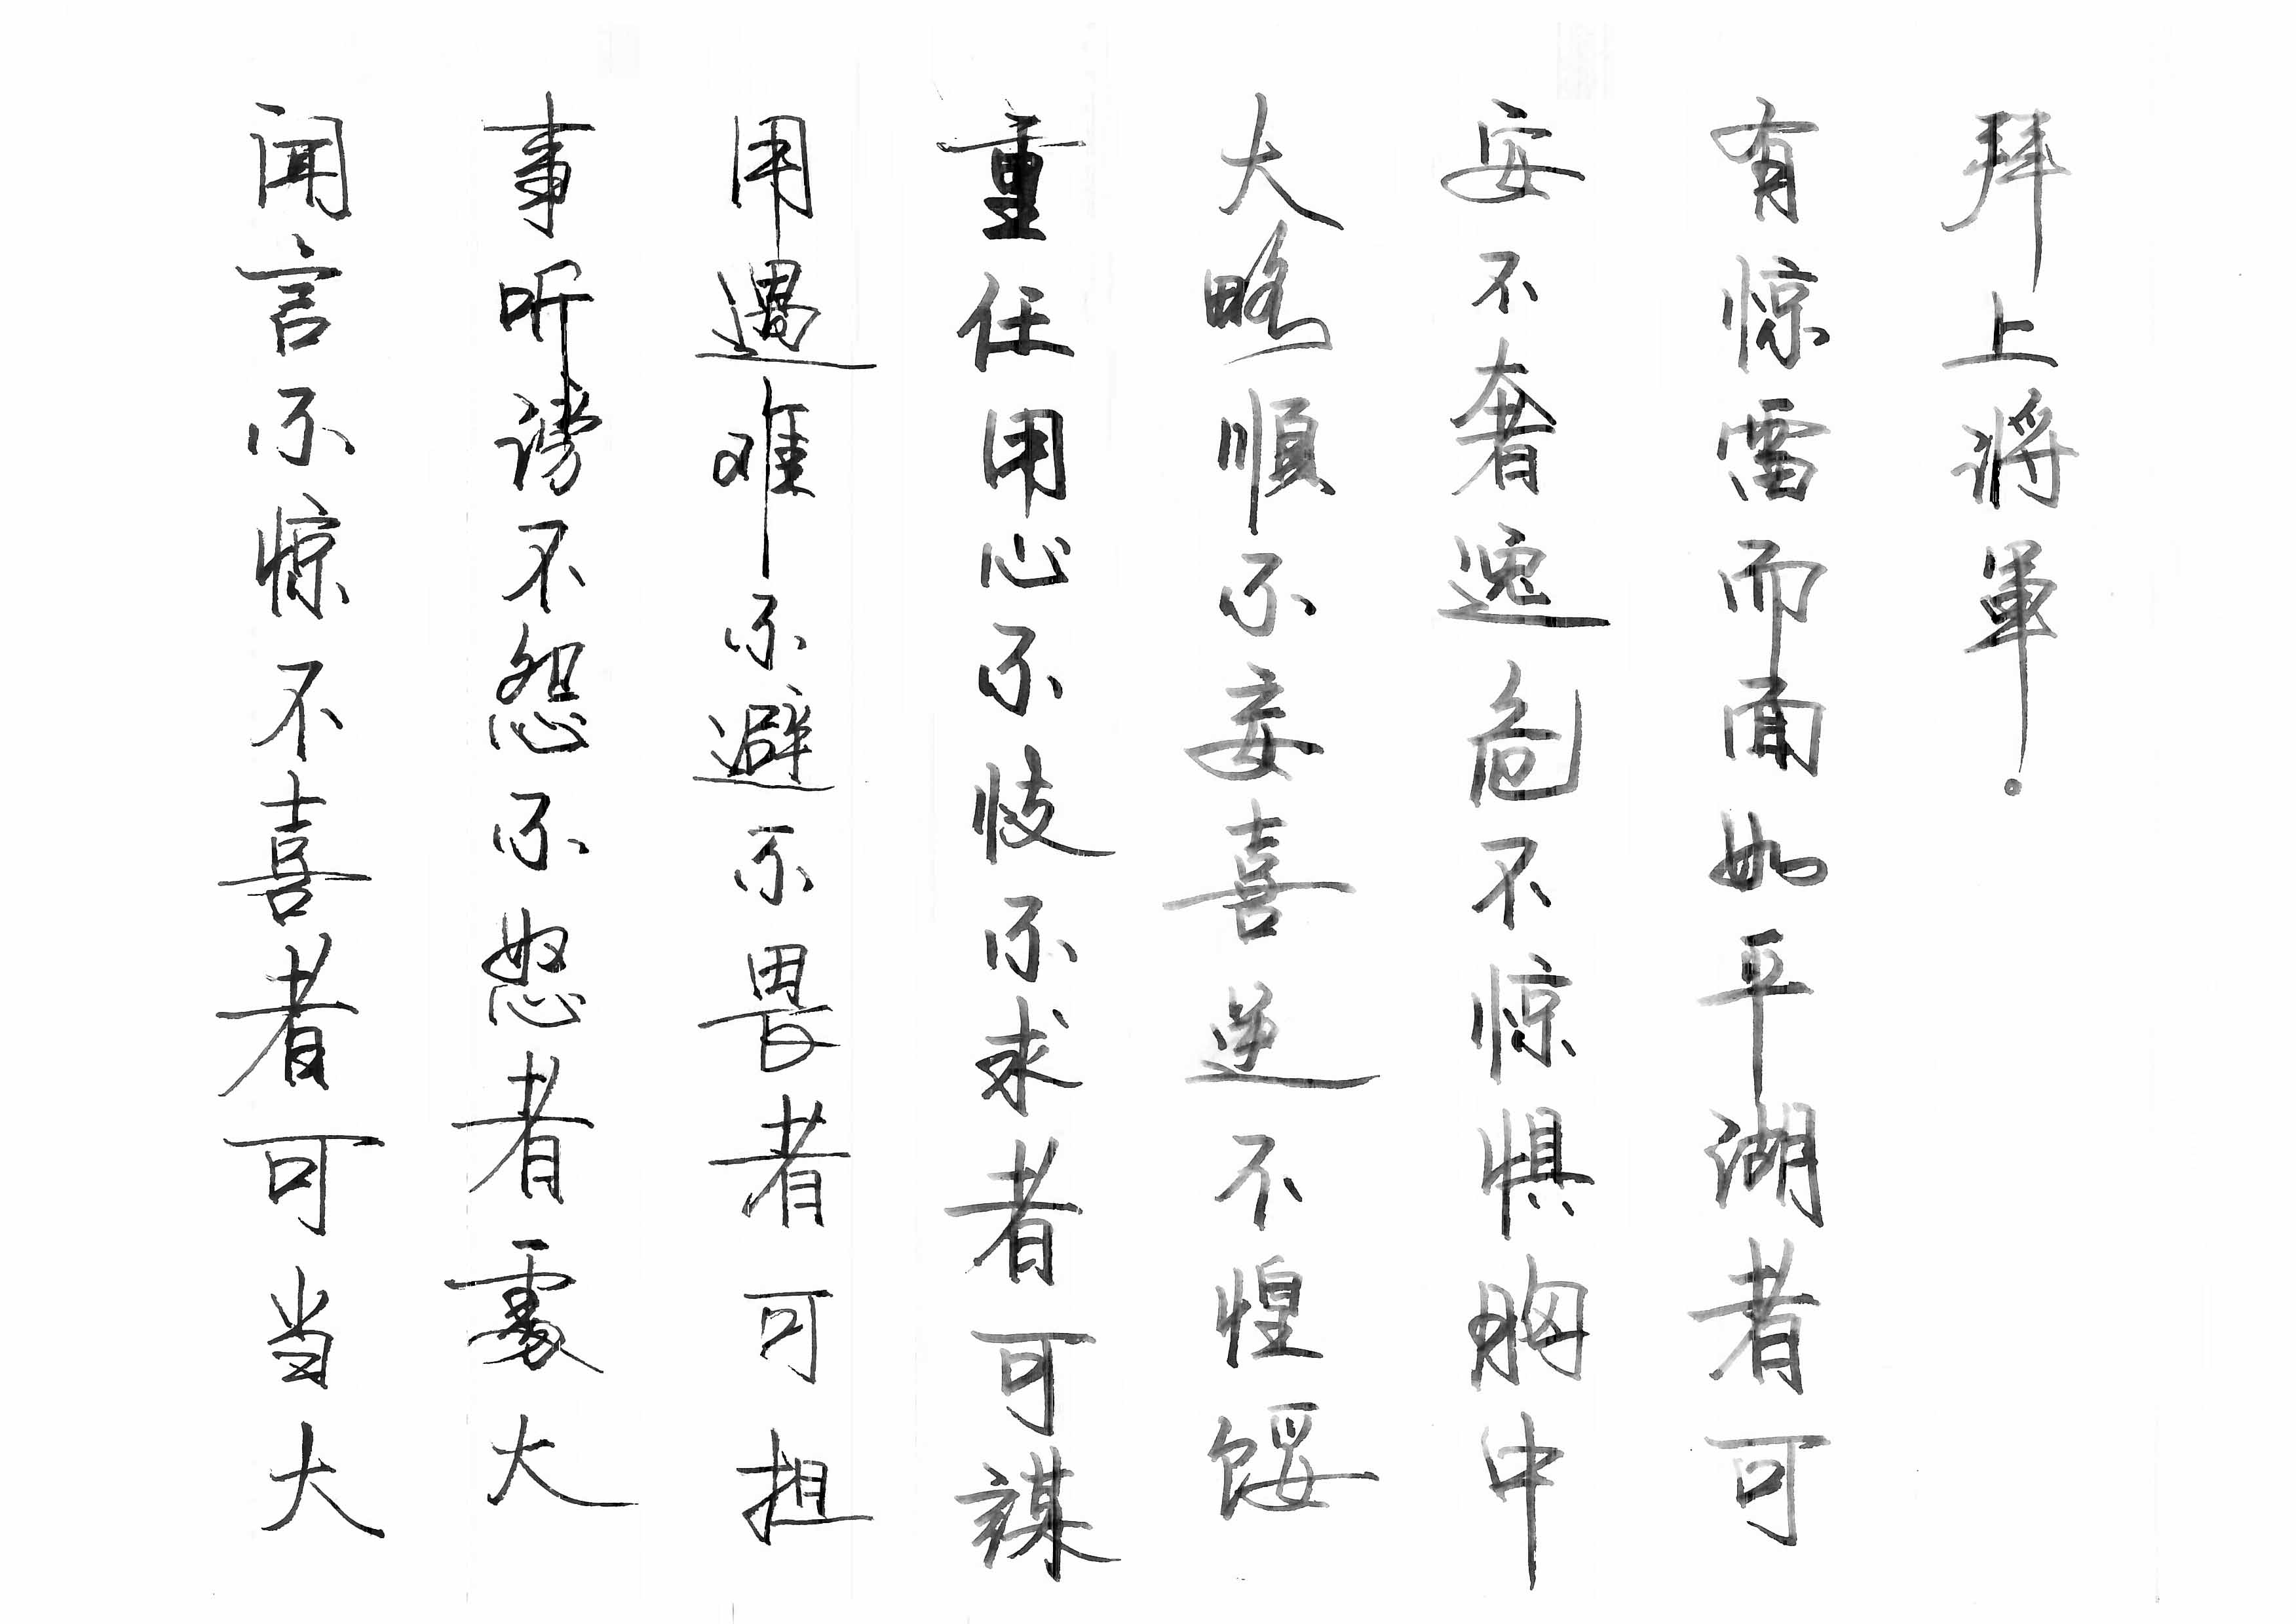 闻言不惊不喜者可当大
事听谤不怨不怒者處大
用遇难不避不畏者可担
重任用心不忮不求者可谋
大略順不妄喜逆不惶馁
安不奢逸危不惊惧胸中
有惊雷而面如平湖者可
拜上将軍.